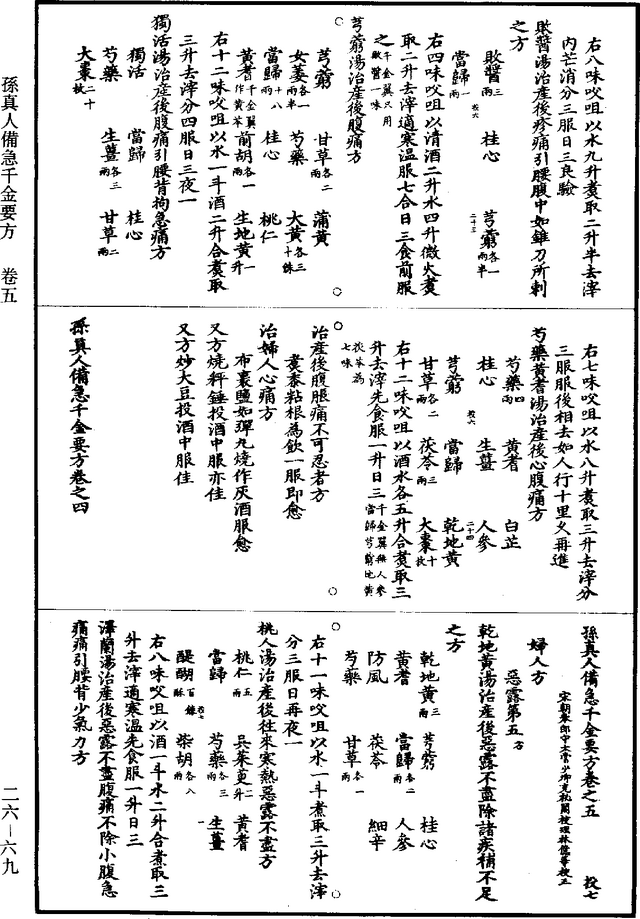 孫真人備急千金要方　卷五
二六—六九
右八味㕮咀以水九升煑取二升半去滓
内芒消分三服日三良驗
敗醬湯治產後疹痛引腰腹中如錐刀所刺
之方
敗醬三兩　桂心　芎藭各一兩半
當歸一兩
右四味㕮咀以清酒二升水四升微火煑
取二升去滓適寒溫服七合日三食前服
之千金翼只用敗醬一味
芎藭湯治產後腹痛方
芎藭　甘草各二兩　蒲黃
女萎各一兩半　芍藥　大黃各三十銖
當歸十八銖　桂心　桃仁
黃耆千金翼作黃芩　前胡各一兩　生地黃一升
右十二味㕮咀以水一斗酒二升合煑取
三升去滓分四服日三夜一
獨活湯治產後腹痛引腰背拘急痛方
獨活　當歸　桂心
芍藥　生薑各三兩　甘草二兩
大棗二十枚
右七味㕮咀以水八升煑取三升去滓分
三服服後相去如人行十里久再進
芍藥黃耆湯治產後心腹痛方
芍藥四兩　黃耆　白芷
桂心　生薑　人參
芎藭　當歸　乾地黃
甘草各二兩　茯苓三兩　大棗十枚
右十二味㕮咀以酒水各五升合煑取三
升去滓先食服一升日三千金翼無人參當歸芎藭地黃茯苓為七味
治產後腹脹痛不可忍者方
煑黍粘根為飲一服即愈
治婦人心痛方
布裹鹽如彈丸燒作灰酒服愈
又方燒秤錘投酒中服亦佳
又方炒大豆投酒中服佳
孫真人備急千金要方卷之四
孫真人備急千金要方卷之五　投七
宋朝奉郎守太常少卿充秘閣校理林億等校正
婦人方
惡露第五方
乾地黃湯治產後惡露不盡除諸疾補不足
之方
乾地黃三兩　芎藭　桂心
黃耆　當歸各二兩　人參
防風　茯苓　細辛
芍藥　甘草各一兩
右十一味㕮咀以水一斗煮取三升去滓
分三服日再夜一
桃人湯治產後往來寒熱惡露不盡方
桃仁五兩　吳茱萸二升　黃耆
當歸　芍藥各三兩　生薑
醍醐百鍊酥　柴胡各八兩
右八味㕮咀以酒一斗水二升合煮取三
升去滓適寒溫先食服一升日三
澤蘭湯治產後惡露不盡腹痛不除小腹急
痛痛引腰背少氣力方